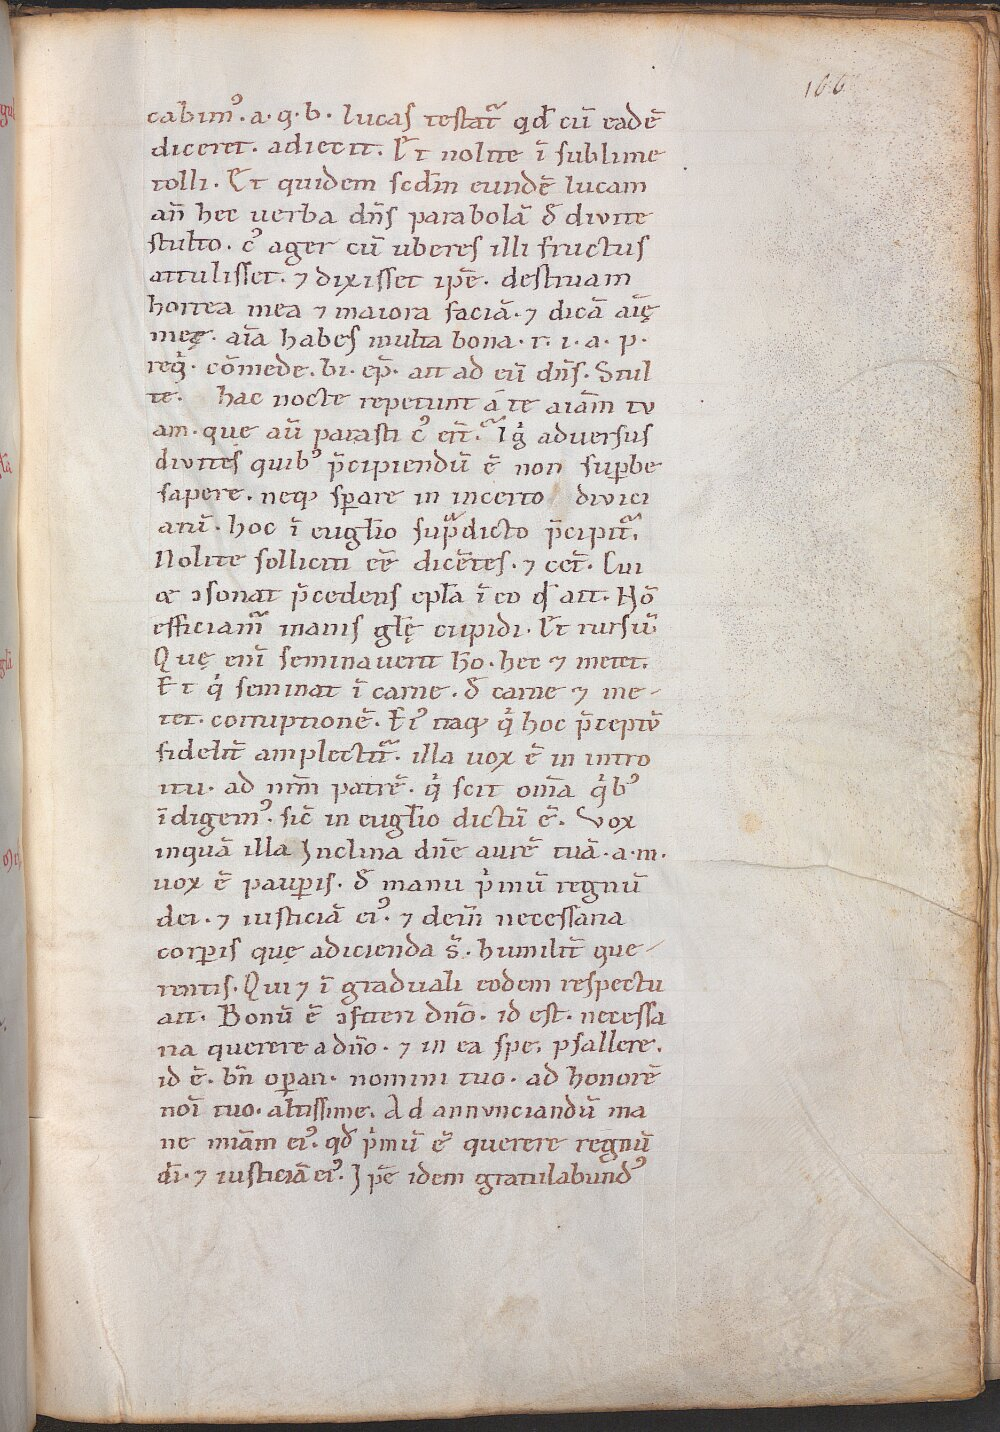 166
cabim᾽. a. q. b. lucas testat᷑ qđ cū eadē
diceret. adiecit. Et nolite ī sublime
tolli. Et quidem scdm̄ eundē lucam
an̄ hec uerba dn̄s parabolā đ divite
stulto. c᾽ ager cū uberes illi fructus
attulisset. ⁊ dixisset ip̄e. destruam
horrea mea ⁊ maiora faciā. ⁊ dicā aīę
meę. aīa habes multa bona. r. i. a. p.
req̇. cōmede. bi. ep̄. ait ad eū dn̄s. Stul
te. hac nocte repetunt á te aīam tv
am. quę aū parasti c᾽ er̄t. Ig̊ adversus
divites quib᾽ p̄cipiendū ē non sup̱be
sapere. neq; sp̱are in incerto divici
arū. hoc ī euḡlio sup᷑dicto p̄cipit᷑.
Nolite solliciti eē dicētes. ⁊ cet̄. Cui
& ɔsonat p̄cedens ep̄la ī eo qđ ait. Nō
efficiam᷑ inanis glę̄ cupidi. Et rursū.
Quę enī seminauerit ho. hec ⁊ metet.
Et q̇ seminat ī carne. đ carne ⁊ me-
tet. corruptionē. Ei᾽ itaq; q̇ hoc p̄ceptū
fidelit̄ amplectit᷑. illa uox ē in intro
itu. ad nr̄m patrē. q̇ scit om̄a q̇b᾽
īdigem᾽. sic̄ in euḡlio dictū ē. Vox
inquā illa Inclina dn̄e aurē tuā. a. m.
uox ē paup̱is. đ manu ṗmū regnū
dei. ⁊ iusticiā ei᾽. ⁊ dein̄ necessaria
corp̱is quę adicienda s̄. humilit̄ que-
rentis. Qui ⁊ ī graduali eodem respectu
ait. Bonū ē ɔfiteri dn̄o. id est. necessa
ria querere a dn̄o. ⁊ in ea spe. psallere.
id ē. bn̄ op̱ari. nomini tuo. ad honorē
noī tuo. altissime. Ad annvnciandū ma
ne mīam ei᾽. qđ ṗmū ē querere regnū
dī. ⁊ iusticiā ei᾽. Ip̄e idem gratulabund᾽